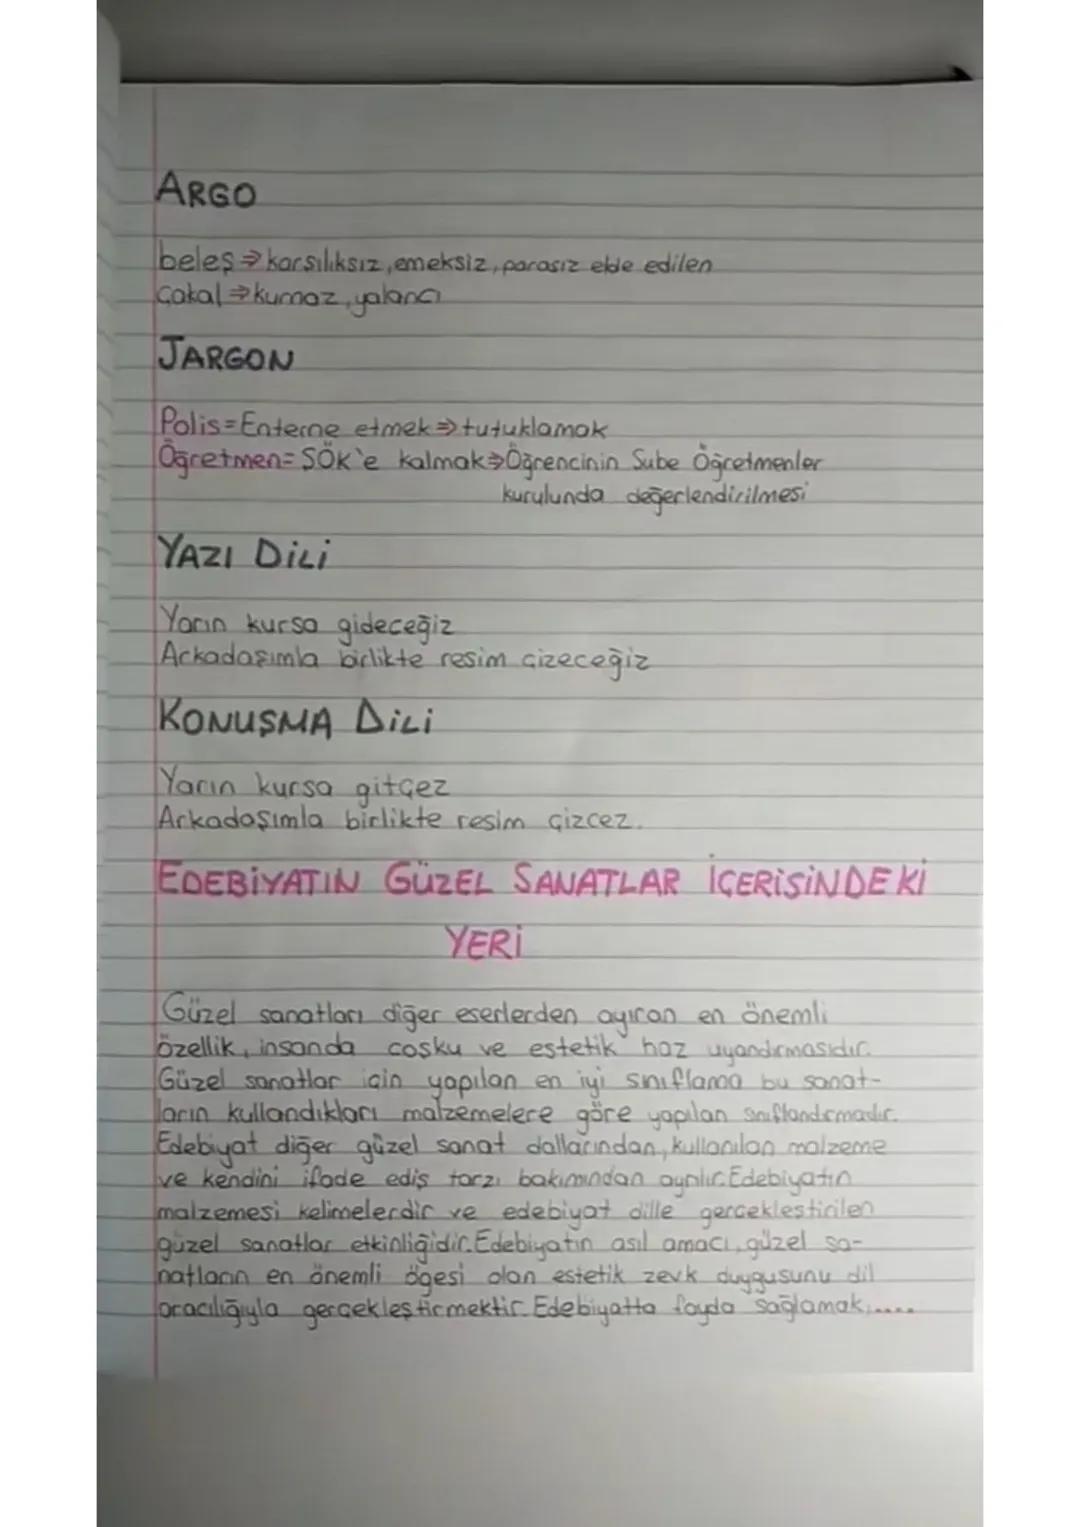 ARGO
beleş ⇒ karşılıksız, emeksiz, parasız elde edilen
Çakal ⇒ kurnaz, yalancı
JARGON
Polis = Enterne etmek ⇒ tutuklamak
Öğretmen = ŞÖK'e kalmak ⇒ Öğrencinin Şube Öğretmenler
kurulunda değerlendirilmesi
YAZI DİLİ
Yarın kursa gideceğiz
Arkadaşımla birlikte resim çizeceğiz
KONUŞMA DİLİ
Yarın kursa gitçez
Arkadaşımla birlikte resim çizcez.
EDEBİYATIN GÜZEL SANATLAR İÇERİSİNDEKİ
YERİ
Güzel sanatları diğer eserlerden ayıran en önemli
özellik, insanda coşku ve estetik haz uyandırmasıdır.
Güzel sanatlar için yapılan en iyi sınıflama bu sanat-
ların kullandıkları malzemelere göre yapılan sınıflandırmadır.
Edebiyat diğer güzel sanat dallarından, kullanılan malzeme
ve kendini ifade ediş tarzı bakımından ayrılır. Edebiyatın
malzemesi kelimelerdir ve edebiyat dille gerçekleştirilen
güzel sanatlar etkinliğidir. Edebiyatın asıl amacı, güzel sa-
natların en önemli öğesi olan estetik zevk duygusunu dil
aracılığıyla gerçekleştirmektir. Edebiyatta fayda sağlamak,....